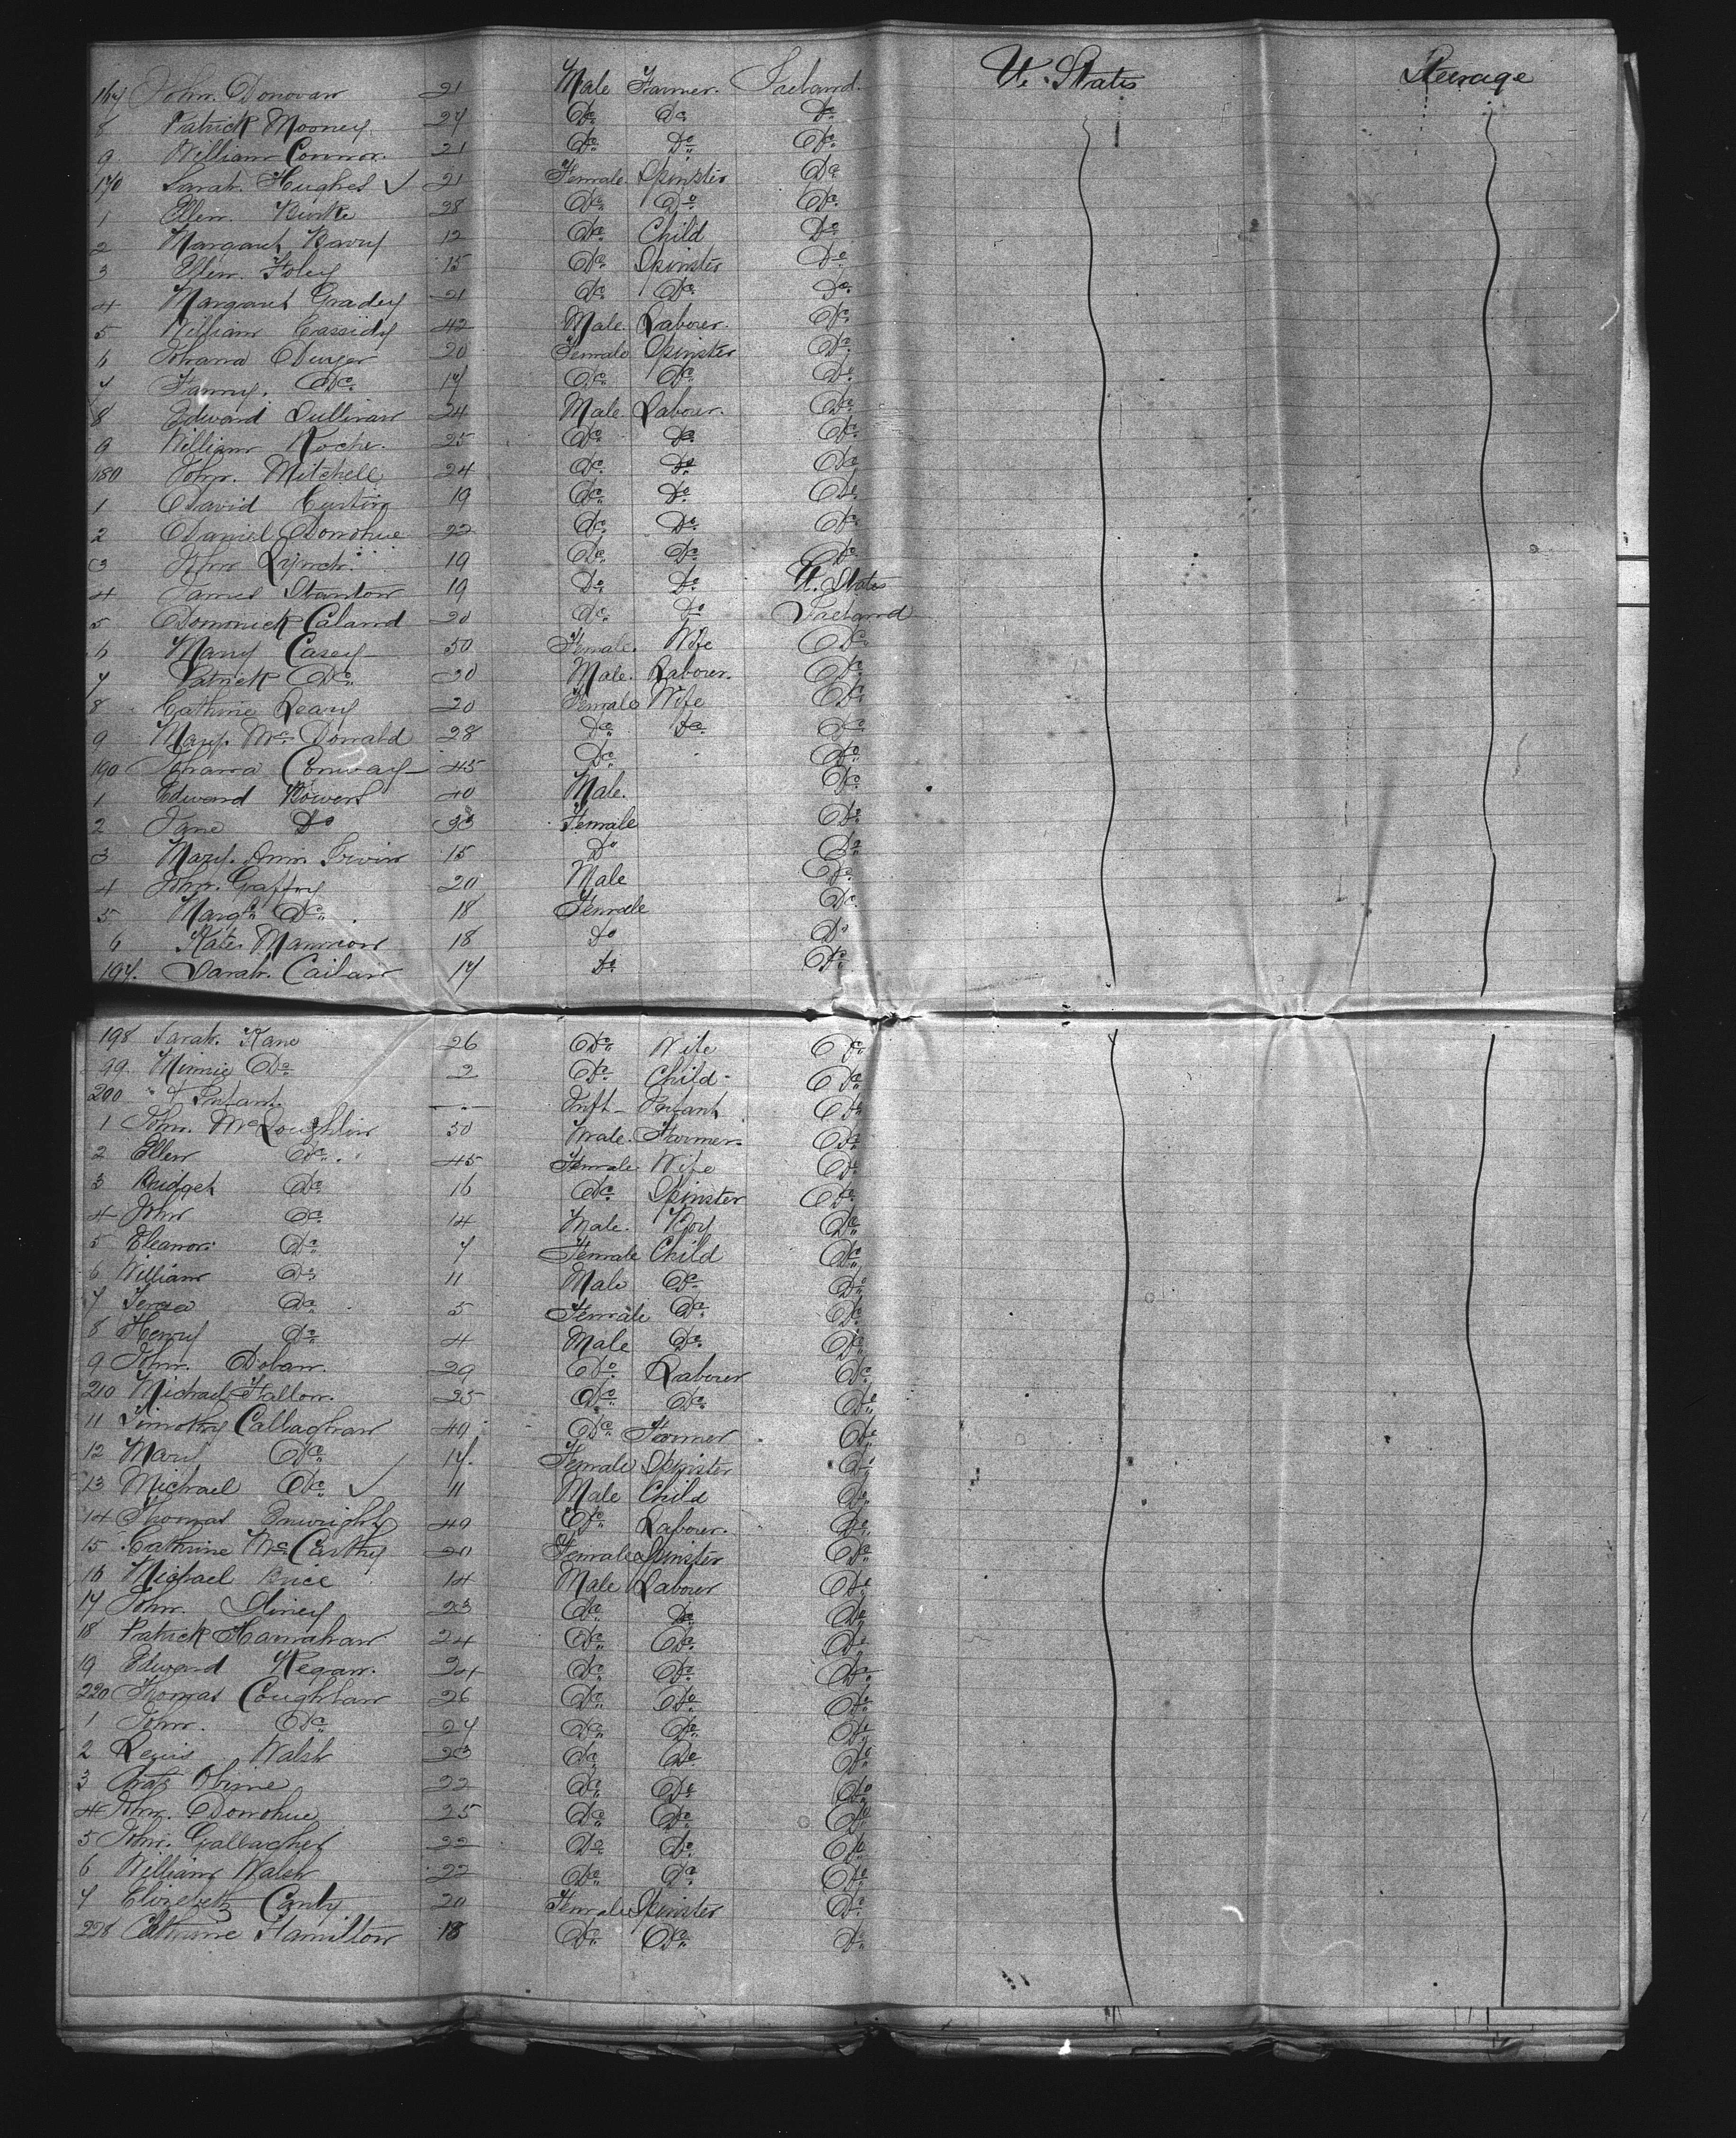 167 John Donovan 21 Male Farmer Ireland U. States Steerage
8 Patrick Mooney 27 Do Do Do
9 William Connor 21 Do Do Do
170 Sarah Hughes ✓ 21 Female Spinster Do
1 Ellen Burke 28 Do Do Do
2 Margaret Barry 12 Do Child Do
3 Ellen Foley 15 Do Spinster Do
4 Margaret Gradey 21 Do Do Do
5 William Cassidy 42 Male Labourer Do
6 Johana Dwyer 20 Female Spinster Do
7 Fanny Do 17 Do Do Do
8 Edward Sullivan 24 Male Labour Do
9 William Roche 25 Do Do Do
180 John Mitchell 24 Do Do Do
1 David Curtin 19 Do Do Do
2 Daniel Donohue 22 Do Do Do
3 John Lynch 19 Do Do Do
4 James Stanton 19 Do Do U. States
5 Dominick Caland 20 Do Do Ireland
6 Mary Casey 50 Female Wife Do
7 Patrick Do 20 Male Labour Do
8 Cathrine Leary 20 Female Wife Do
9 Mary Mc Donald 28 Do Do Do
190 Johana Conway 45 Do Do
1 Edward Bowers 40 Male Do
2 Jane Do 33 Female Do
3 Mary Ann Irwin 15 Do Do
4 John Graffry 20 Male Do
5 Margt Do 18 Female Do
6 Kate 18 Do Do
197 Sarah 17 Do Do
198 Sarah Kane 26 Do Wife Do
99 Minnie Do 2 Do Child Do
200 " & Infant Inft Infant Do
1 John McLoughlin 50 Male Farmer Do
2 Ellen Do 45 Female Wife Do
3 Bridget Do 16 Do Spinster Do
4 John Do 14 Male Boy Do
5 Eleanor Do 7 Female Child Do
6 William Do 11 Male Do Do
7 Teresa Do 5 Female Do Do
8 Henry Do 4 Male Do Do
9 John Dolan 29 Do Labourer Do
210 Michael Fallon 25 Do Do Do
11 Timothy Callaghan 49 Do Farmer Do
12 Mary Do 17 Female Spinster Do
13 Michael Do ✓ 11 Male Child Do
14 Thomas Enwright 49 Do Labour Do
15 Cathrine McCarthy 20 Female Spinster Do
16 Michael Price 14 Male Labour Do
17 John 23 Do Do Do
18 Patrick Hanrahan 24 Do Do Do
19 Edward Regan 24 Do Do Do
220 Thomas Coughlan 26 Do Do Do
1 John Do 27 Do Do Do
2 Lewis Walsh 23 Do Do Do
3 22 Do Do Do
4 John Donohue 25 Do Do Do
5 John Gallagher 22 Do Do Do
6 William Walsh 22 Do Do Do
7 Elizabeth Canty 20 Female Spinster Do
228 Cathrine Hamilton 18 Do Do Do